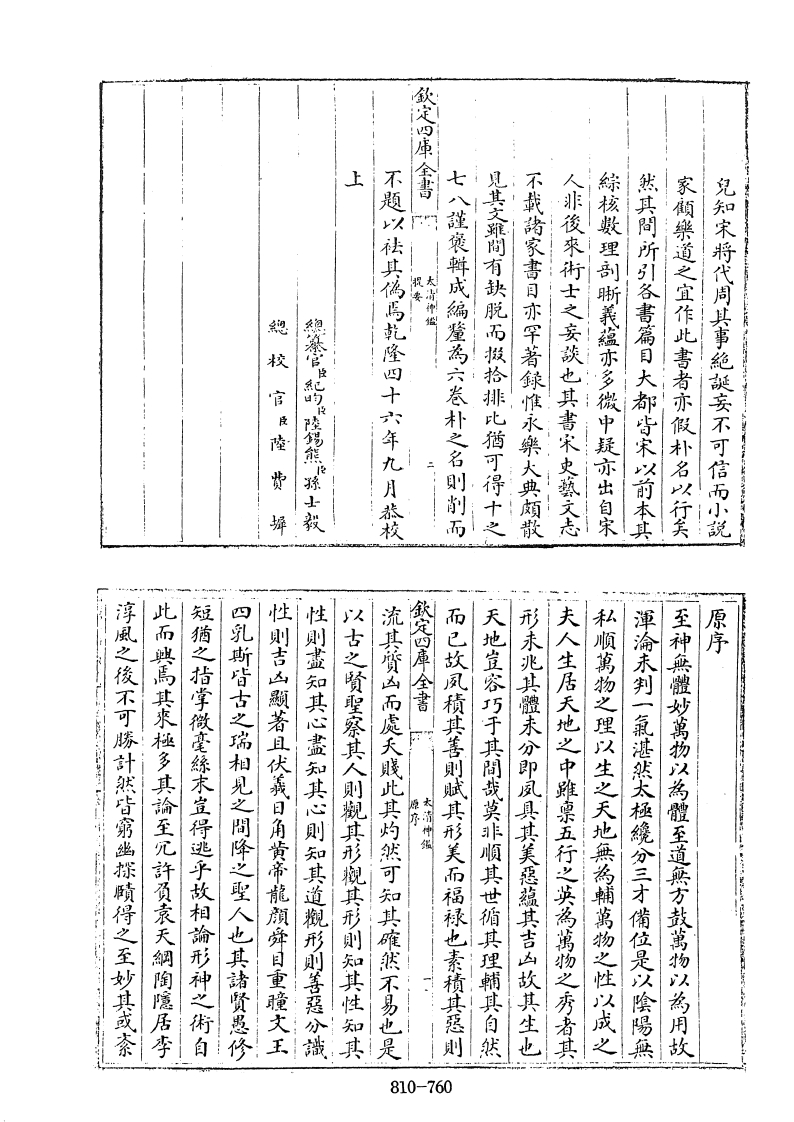 兒知宋將代周其事絶誕妄不可信而小説
家顧樂道之宜作此書者亦假朴名以行矣
然其間所引各書篇目大都皆宋以前本其
綜核數理剖晰義蘊亦多微中疑亦出自宋
人非後來術士之妄談也其書宋史藝文志
不載諸家書目亦罕著録惟永樂大典頗散
見其文雖間有缺脱而掇拾排比猶可得十之
欽定四庫全書
太清神鑑
提要
二
七八謹裒輯成編釐為六卷朴之名則削而
不題以祛其偽焉乾隆四十六年九月恭校
上
總纂官臣紀昀臣陸錫熊臣孫士毅
總校官臣陸費墀
原序
至神無體妙萬物以為體至道無方鼓萬物以為用故
渾淪未判一氣湛然太極纔分三才備位是以陰陽無
私順萬物之理以生之天地無為輔萬物之性以成之
夫人生居天地之中雖禀五行之英為萬物之秀者其
形未兆其體未分即夙具其美惡蘊其吉凶故其生也
天地豈容巧于其間哉莫非順其世循其理輔其自然
而已故夙積其善則賦其形美而福禄也素積其惡則
欽定四庫全書
太清神鑑
原序
一
流其質凶而處夭賤此其灼然可知其確然不易也是
以古之賢聖察其人則觀其形觀其形則知其性知其
性則盡知其心盡知其心則知其道觀形則善惡分識
性則吉凶顯著且伏羲日角黄帝龍顔舜目重瞳文王
四乳斯皆古之瑞相見之間降之聖人也其諸賢愚修
短猶之指掌微毫絲末豈得逃乎故相論形神之術自
此而興焉其來極多其論至冗許負袁天綱陶隱居李
淳風之後不可勝計然皆窮幽探賾得之至妙其或紊
810-760